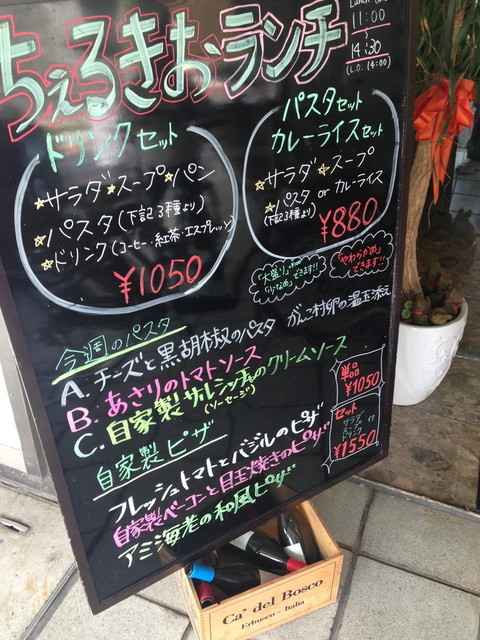 ちぇるきおランチ
11:00
~
14:30
(L.O. 14:00)
ドリンクセット
☆サラダ☆スープ☆パン
☆パスタ(下記3種より)
☆ドリンク(コーヒー・紅茶・エスプレッソ)
¥1050
パスタセット
カレーライスセット
☆サラダ☆スープ
☆パスタ or カレーライス
(下記3種より)
¥880
"大盛り"
"少なめ"できます!!
"やわらかめ"
できます!!
今週のパスタ
A. チーズと黒胡椒のパスタ がんこ村卵の温玉添え
B. あさりのトマトソース
C. 自家製サルシッチャのクリームソース
(ソーセージ)
自家製ピザ
フレッシュトマトとバジルのピザ
自家製ベーコンと目玉焼きのピザ
アミ海老の和風ピザ
単品
¥1050
セット
サラダ
ドリンク
付
¥1550
Ca' del Bosco
Erbusco - Italia